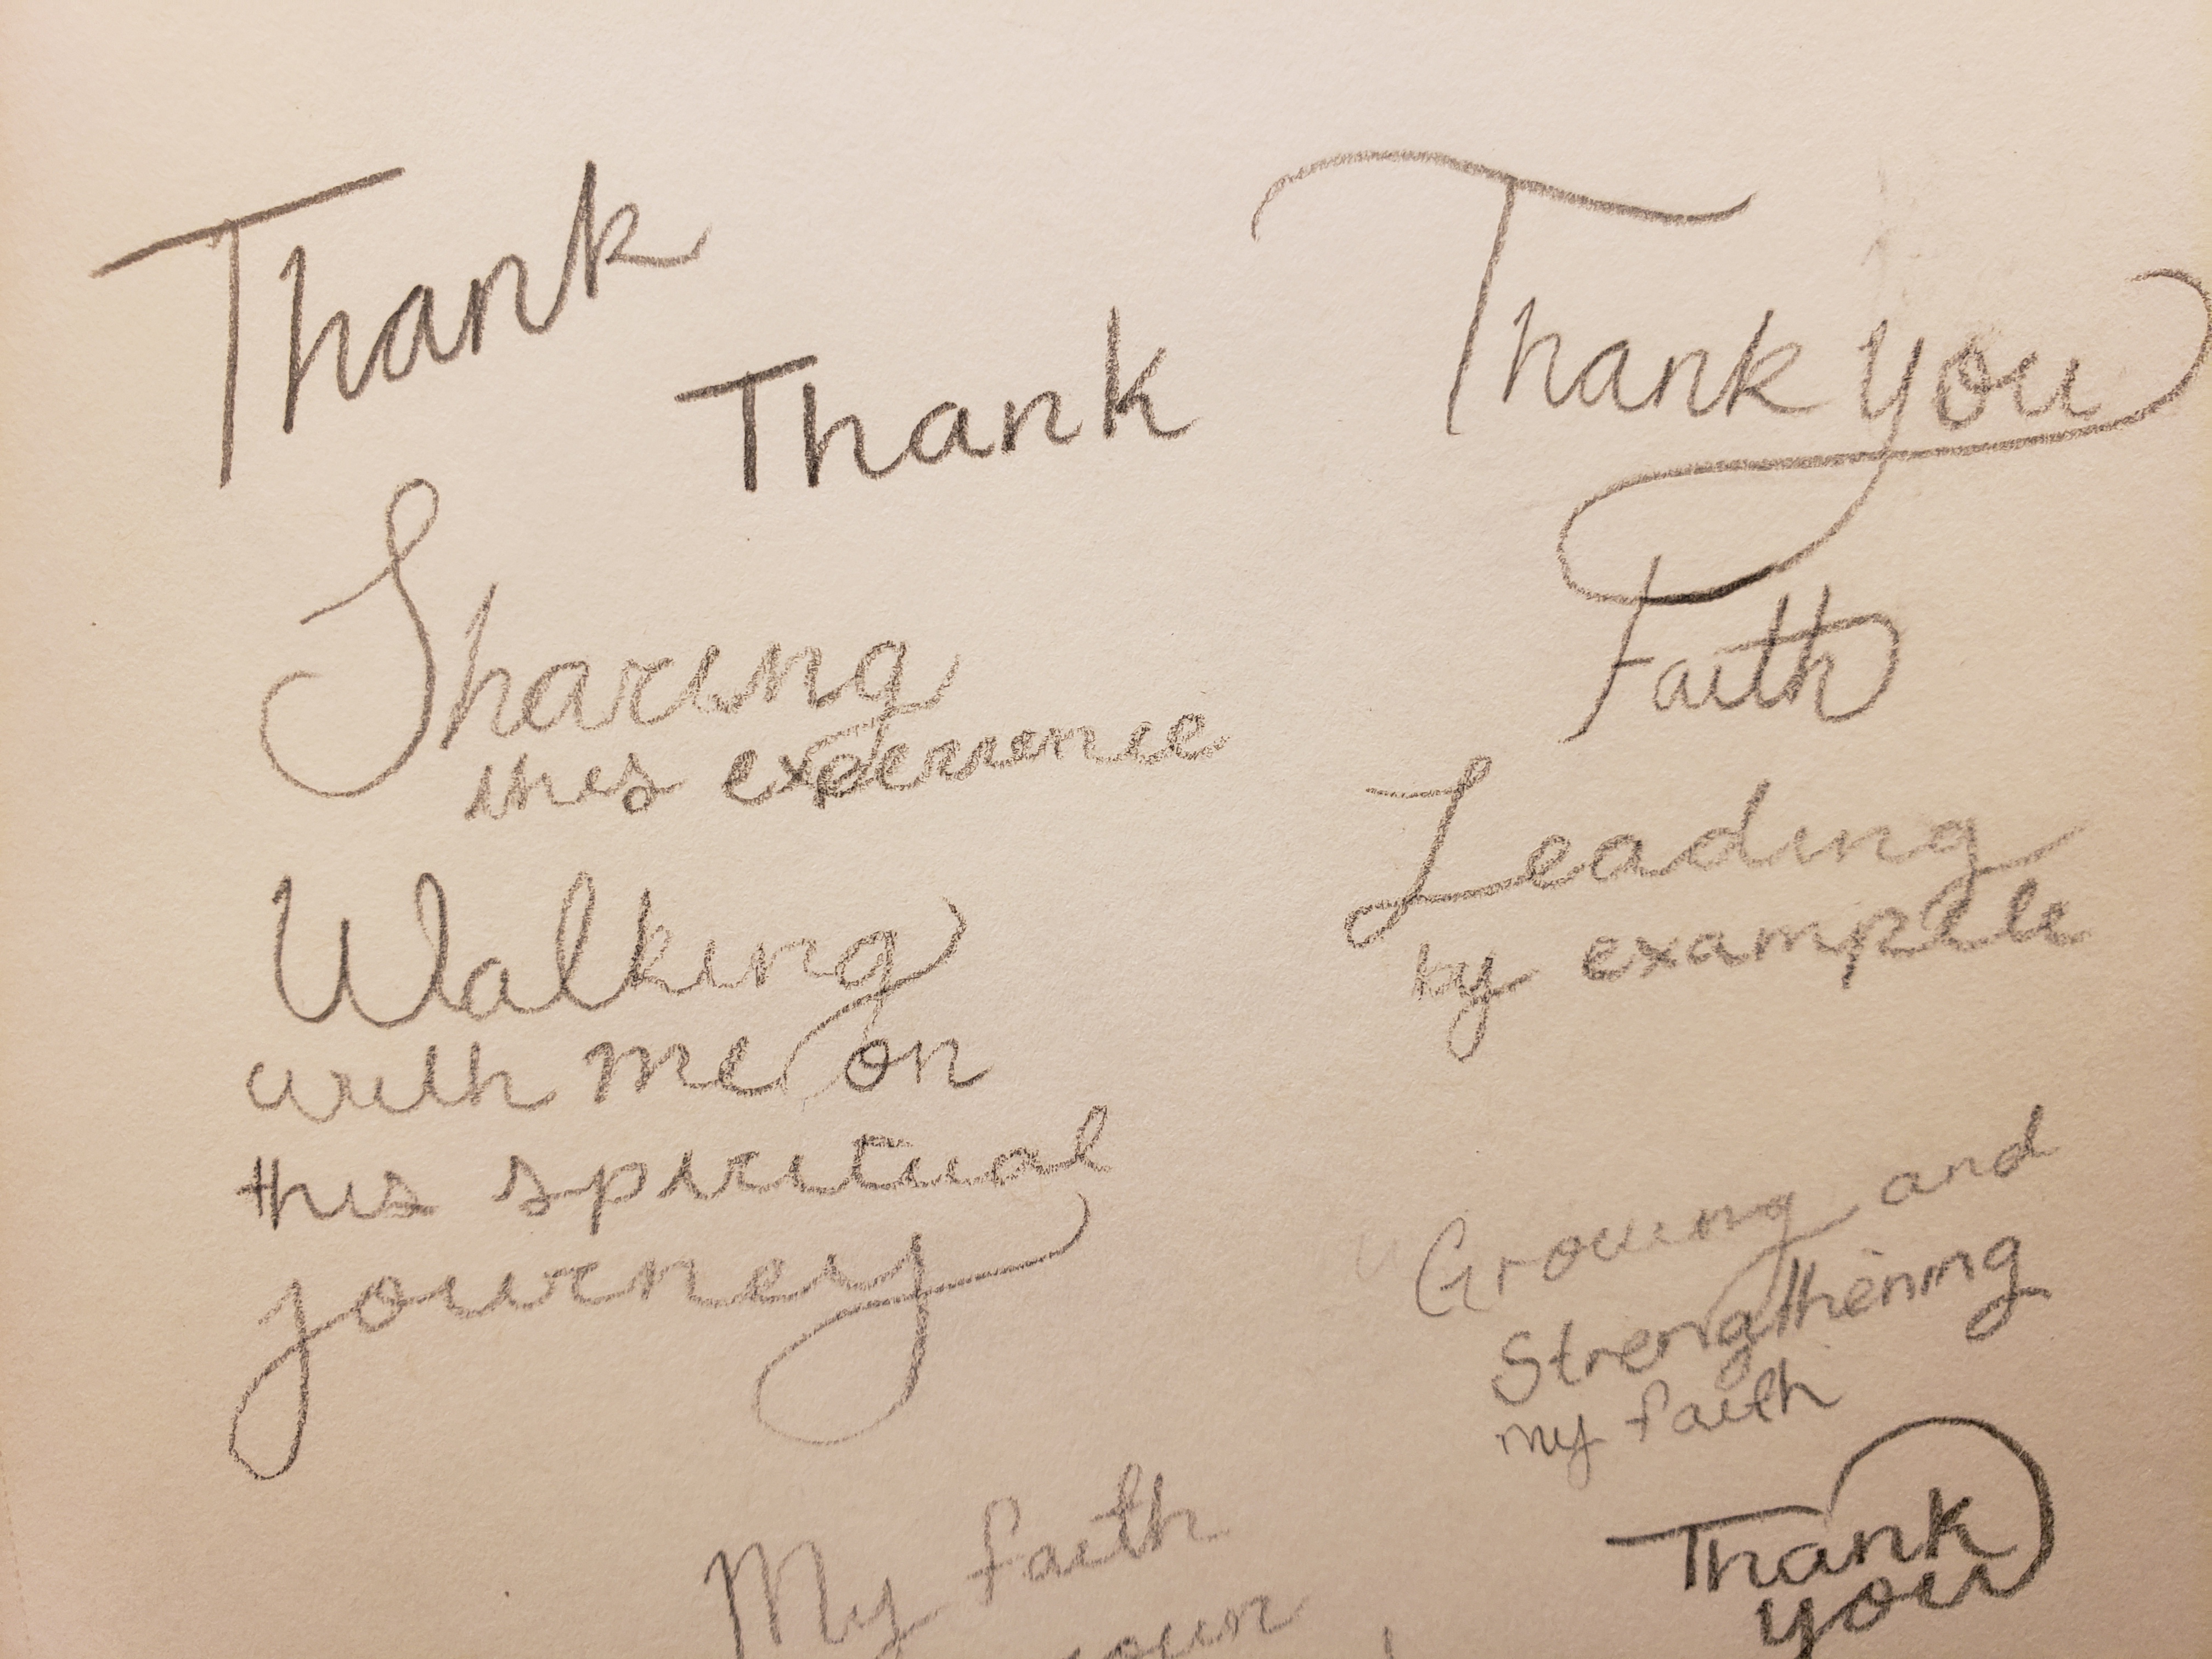 Thank
Thank
Sharing
this experience
Walking
with me on
this spiritual
journey
Thank you
Faith
Leading
by example
Growing and
Strengthening
my faith
My faith
Thank
you